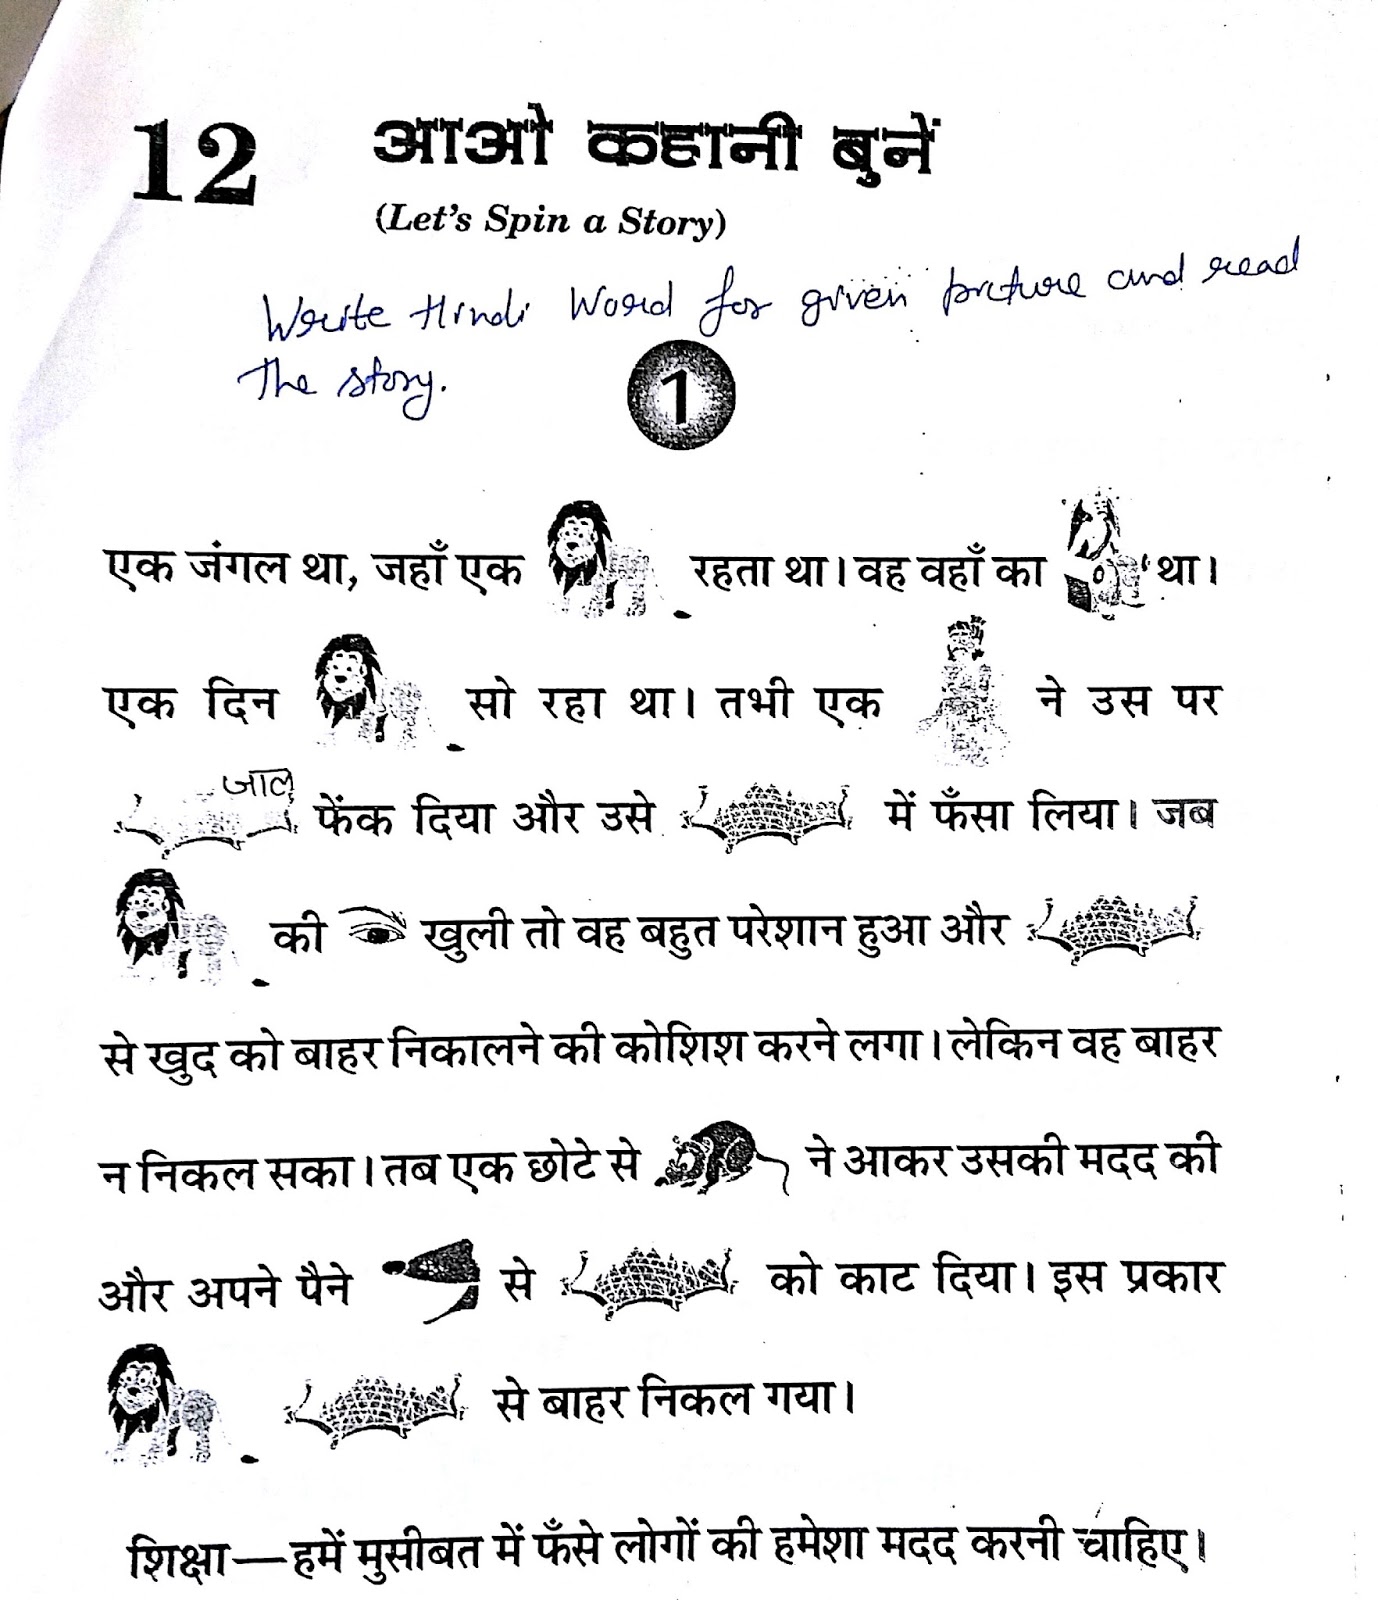 12 आओ कहानी बुनें
(Let's Spin a Story)
Write Hindi Word for given picture and read
The story.
1
एक जंगल था, जहाँ एक रहता था। वह वहाँ का था।
एक दिन सो रहा था। तभी एक ने उस पर
जाल फेंक दिया और उसे में फँसा लिया। जब
की खुली तो वह बहुत परेशान हुआ और
से खुद को बाहर निकालने की कोशिश करने लगा। लेकिन वह बाहर
न निकल सका। तब एक छोटे से ने आकर उसकी मदद की
और अपने पैने से को काट दिया। इस प्रकार
से बाहर निकल गया।
शिक्षा—हमें मुसीबत में फँसे लोगों की हमेशा मदद करनी चाहिए।